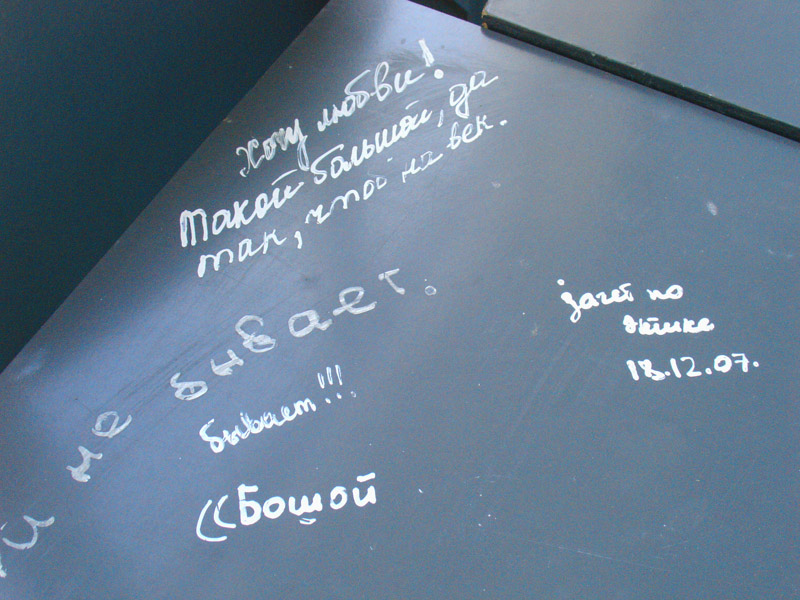 Хочу любви!
Такой большой, да
так, чтоб на век.
не бывает.
бывает!!!
((Бошой
зачет по
этике
18.12.07.